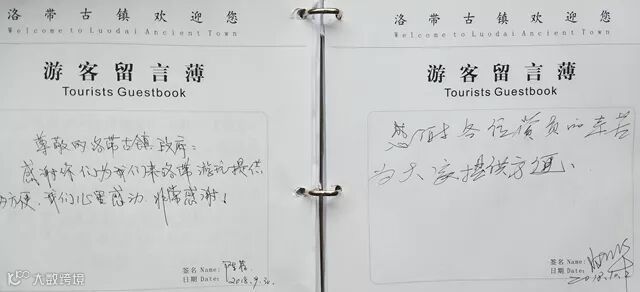 洛带古镇欢迎您
Welcome to Luodai Ancient Town
游客留言薄
Tourists Guestbook
尊敬的洛带古镇政府：
感谢你们为我们来洛带游玩提供
方便，我们心里感动，非常感谢！
签名 Name:
日期 Date: 2018.9.30.
洛带古镇欢迎您
Welcome to Luodai Ancient Town
游客留言薄
Tourists Guestbook
感谢各位演员的辛苦
为大家提供方便、
签名 Name:
日期 Date: 2018.10.2
大数跨境